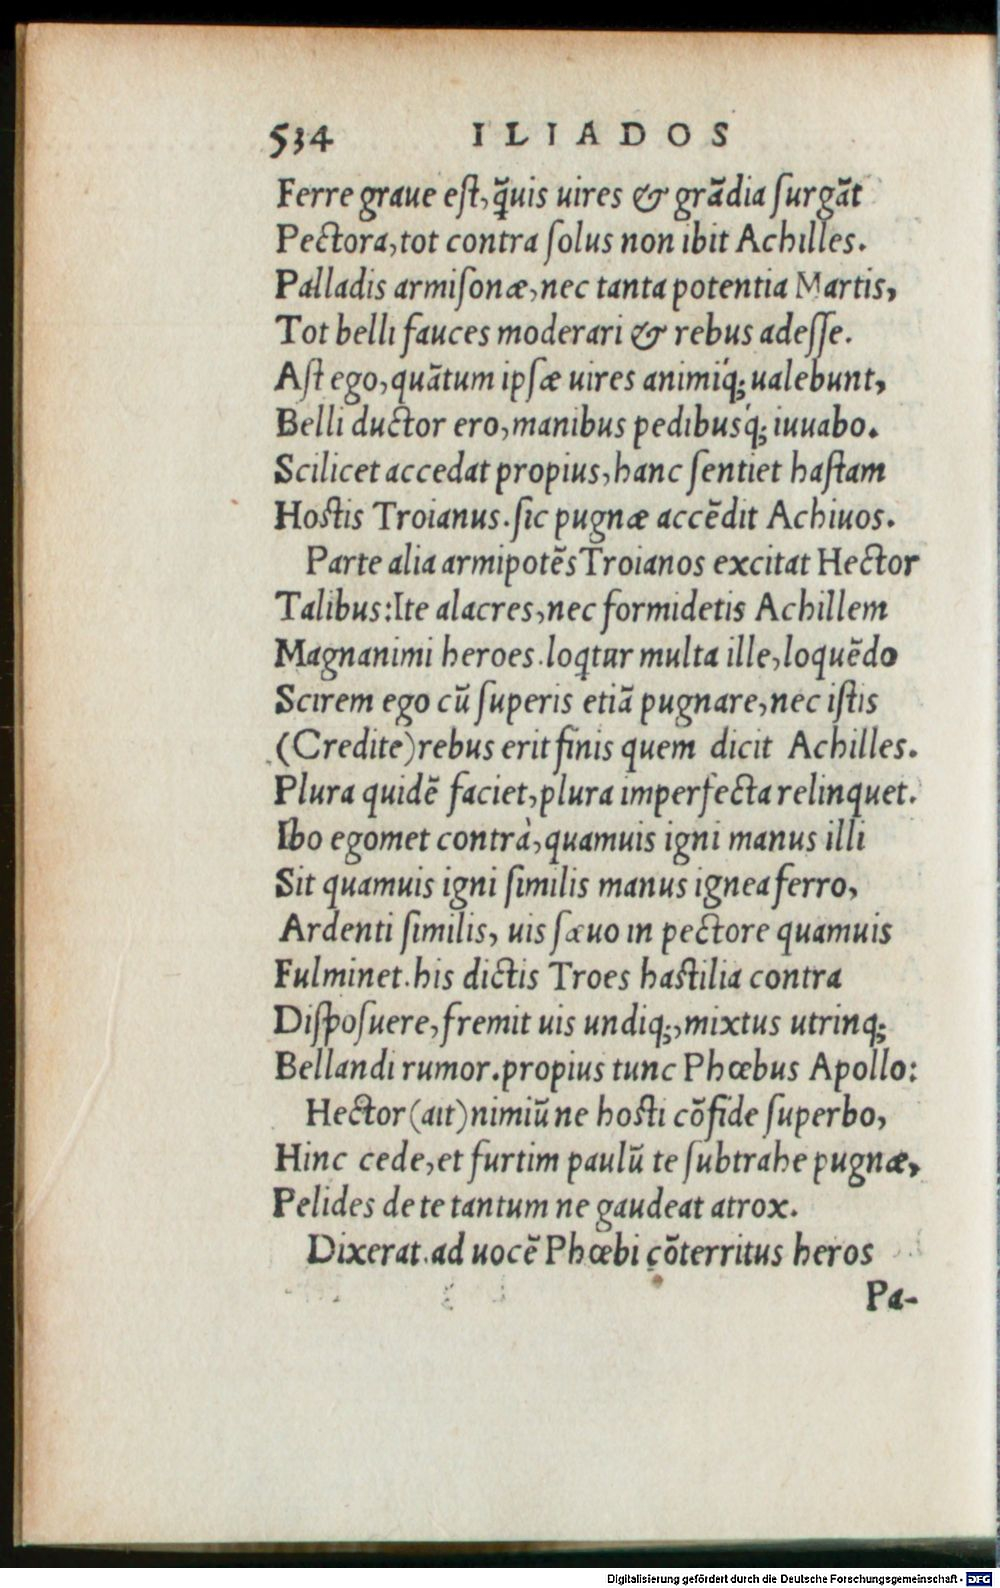 534 ILIADOS
Ferre graue eſt, q̃uis uires & grãdia ſurgãt
Pectora, tot contra ſolus non ibit Achilles.
Palladis armiſonæ, nec tanta potentia Martis,
Tot belli fauces moderari & rebus adeſſe.
Aſt ego, quãtum ipſæ uires animiq́; ualebunt,
Belli ductor ero, manibus pedibusq́; iuuabo.
Scilicet accedat propius, hanc ſentiet haſtam
Hoſtis Troianus. ſic pugnæ accẽdit Achiuos.
Parte alia armipotẽs Troianos excitat Hector
Talibus: Ite alacres, nec formidetis Achillem
Magnanimi heroes. loqtur multa ille, loquẽdo
Scirem ego cũ ſuperis etiã pugnare, nec iſtis
(Credite) rebus erit finis quem dicit Achilles.
Plura quidẽ faciet, plura imperfecta relinquet.
Ibo egomet contrà, quamuis igni manus illi
Sit quamuis igni ſimilis manus ignea ferro,
Ardenti ſimilis, uis ſæuo in pectore quamuis
Fulminet. his dictis Troes haſtilia contra
Diſpoſuere, fremit uis undiq;, mixtus utrinq;
Bellandi rumor. propius tunc Phœbus Apollo:
Hector (ait) nimiũ ne hoſti cõfide ſuperbo,
Hinc cede, et furtim paulũ te ſubtrahe pugnæ,
Pelides de te tantum ne gaudeat atrox.
Dixerat. ad uocẽ Phœbi cõterritus heros
Pa-
Digitalisierung gefördert durch die Deutsche Forschungsgemeinschaft - DFG